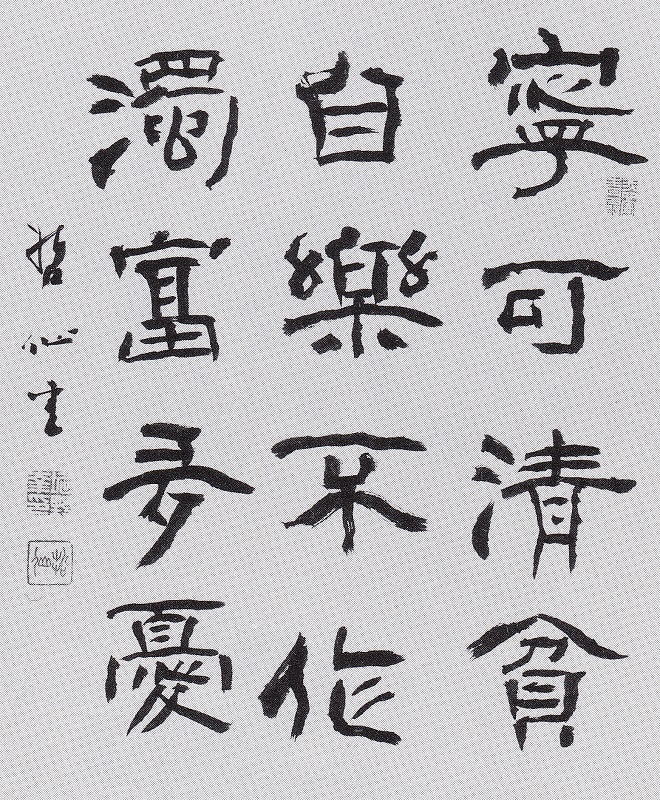 寧可清貧
自樂不作
濁富多憂
哲仙